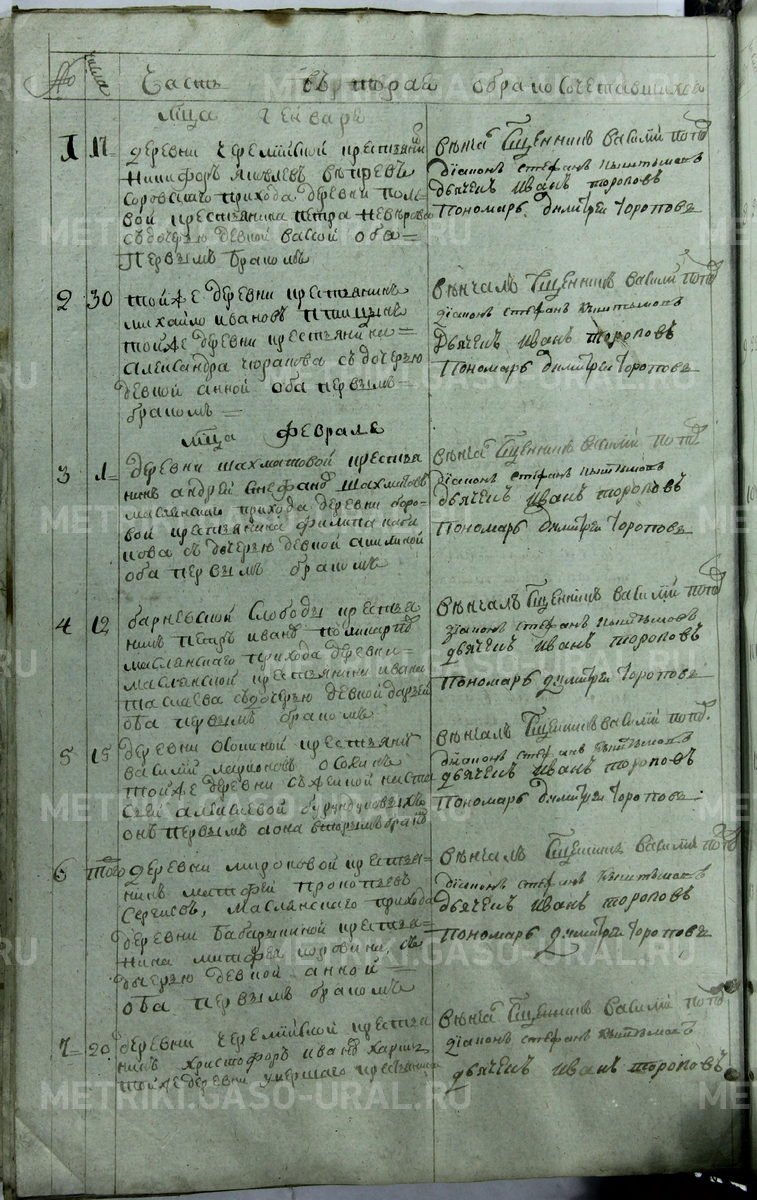 № числа Часть вторая о бракосочетавшихся
мца генваря
1 17 деревни Черемисской крестьянинъ
Никифоръ Яковлевъ
соровскаго прихода деревни
вой крестьянина Петра
съ дочерью девкой Вассой оба
первымъ бракомъ
венча Сщенникъ Василий Поповъ
дiаконъ Стефанъ Кыштымовъ
дьячекъ Иванъ Тороповъ
Пономарь Димитрей Тороповъ
2 30 той же деревни крестьянинъ
Михайло Ивановъ Птицынъ
той же деревни крестьянина
Александра Чюракова съ дочерью
девкой Анной оба первымъ
бракомъ
венчалъ Сщенникъ Василий Поповъ
дiаконъ Стефанъ Кыштымовъ
дьячекъ Иванъ Тороповъ
Пономарь Димитрей Тороповъ
мца Февраля
3 1 деревни Шахматовой крестья
нинъ Андрей Стефановъ Шахматовъ
маслянскаго прихода деревни боро
вой крестьянина Филипа
нова съ дочерью девкой Акилиной
оба первымъ бракомъ
венча Сщенникъ Василий Поповъ
дiаконъ Стефанъ Кыштымовъ
дьячекъ Иванъ Тороповъ
Пономарь Димитрей Тороповъ
4 12 барневской Слободы крестья
нинъ Петръ Ивановъ
маслянскаго прихода деревни
маслянской крестьянина Ивана
съ дочерью девкой Дарьей
оба первымъ бракомъ
венчалъ Сщенникъ Василий Поповъ
дiаконъ Стефанъ Кыштымовъ
дьячекъ Иванъ Тороповъ
Пономарь Димитрей Тороповъ
5 15 деревни Осокиной крестьянинъ
Василий Ларионовъ Осокинъ
той же деревни съ женкой Наста
сьей Алексиевой Бурундуковыхъ
онъ первымъ а она вторымъ бракомъ
венчалъ Сщенникъ Василий Поповъ
дiаконъ Стефанъ Кыштымовъ
дьячекъ Иванъ Тороповъ
Пономарь Димитрей Тороповъ
6 того деревни Мироновой крестья
нинъ Матфей Прокопьевъ
Сергиевъ, Маслянскаго прихода
деревни Бабарыкиной крестья
нина Матфея Коровина съ
дочерью девкой Анной
оба первымъ бракомъ
венчалъ Сщенникъ Василий Поповъ
дiаконъ Стефанъ Кыштымовъ
дьячекъ Иванъ Тороповъ
Пономарь Димитрей Тороповъ
7 20 деревни Черемисской крестья
нинъ Христофоръ Ивановъ
той же деревни умершаго крестьянина
венча Сщенникъ Василий Поповъ
дiаконъ Стефанъ Кыштымовъ
дьячекъ Иванъ Тороповъ
METRIKI.GASO-URAL.RU